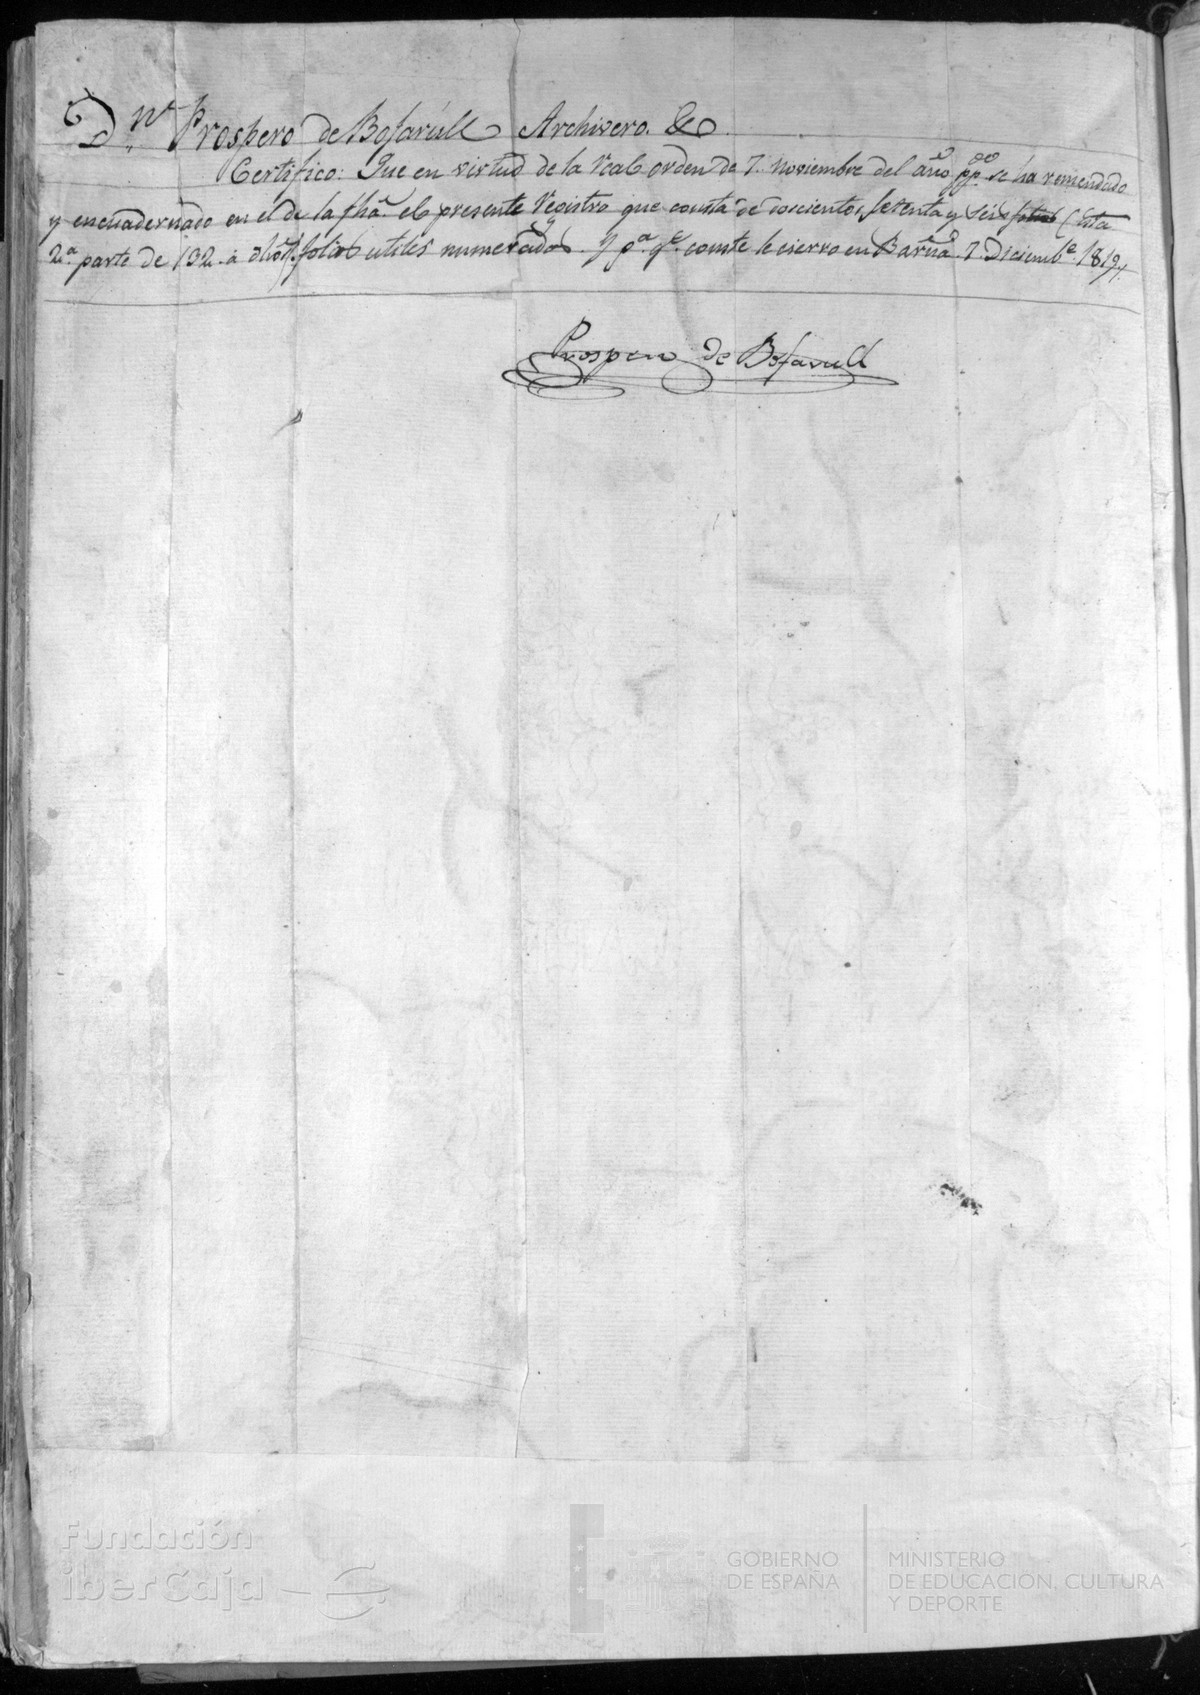 Dn. Prospero de Bofarúll Archivero. &c.
Certifico: Que en virtud de la real orden de 7. noviembre del año ppdo. se ha remendado
y encuadernado en el de la fha. el presente registro que consta de doscientos, setenta y seis (esta
2a. parte de 132. á dhos.) folios utiles numerados. Y pa. qe. conste le cierro en Barna. 7. Diciembe. 1819.
Prospero de Bofarull
Fundación
iberCaja
GOBIERNO
DE ESPAÑA
MINISTERIO
DE EDUCACIÓN, CULTURA
Y DEPORTE